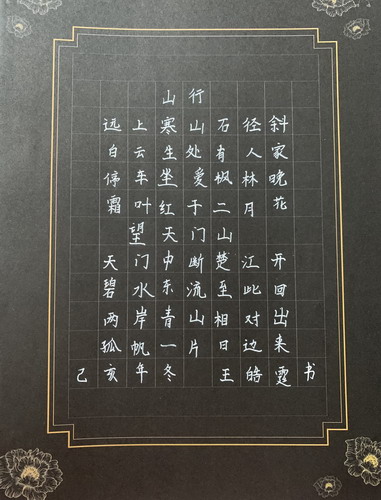 山行
远上寒山石径斜
白云生处有人家
停车坐爱枫林晚
霜叶红于二月花
望天门山
天门中断楚江开
碧水东流至此回
两岸青山相对出
孤帆一片日边来
己亥年冬 王皓霆书